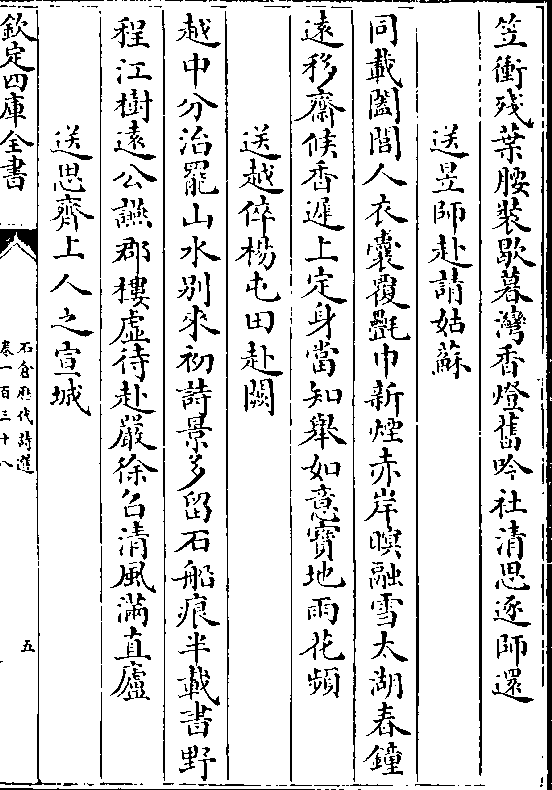 笠衝殘葉腰裝歇暮灣香燈舊吟社清思逐師還
送昱師赴請姑蘇
同載闔閭人衣囊覆㲲巾新煙赤岸暝融雪太湖春鐘
遠移齋候香遲上定身當知舉如意寶地雨花頻
送越倅楊屯田赴闕
越中分治罷山水别來初詩景多留石船痕半載書野
程江樹遠公讌郡樓虛待赴嚴徐召清風滿直廬
送思齊上人之宣城
欽定四庫全書
石倉歷代詩選
卷一百三十八
五